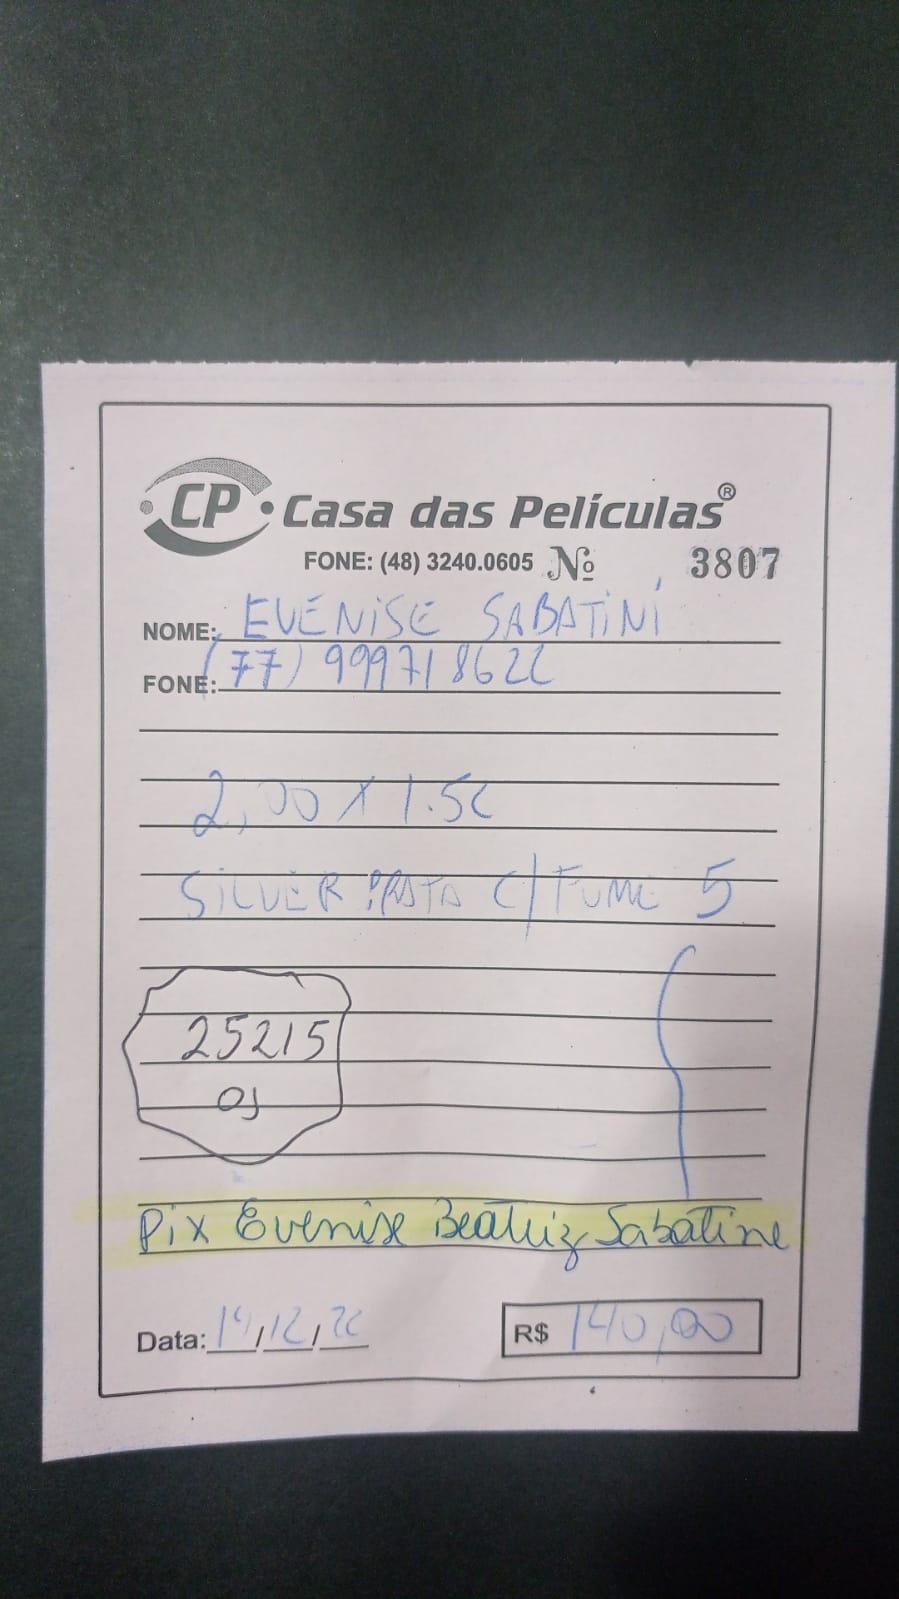 CP Casa das Películas®
FONE: (48) 3240.0605 Nº 3807
NOME: EVENISE SABATINI
FONE: (77) 999718622
2,00 X 1.50
SILVER PRATA C/ FUME 5
25215
OS
Pix Evenise Beatriz Sabatine
Data: / 12 /
R$ 140,00